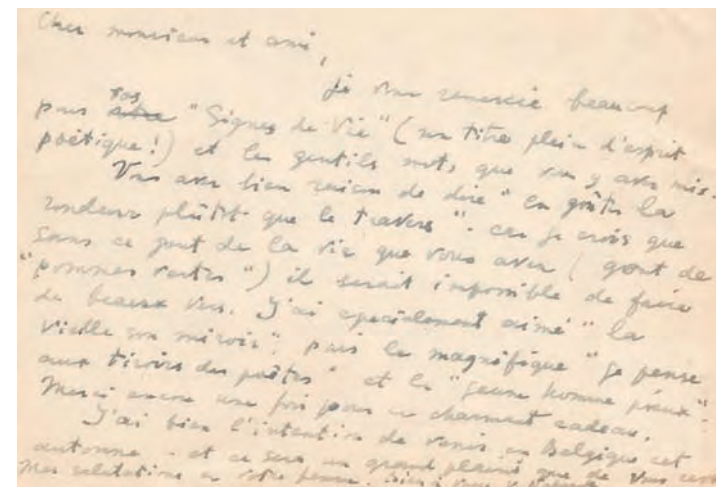 Cher monsieur et ami,
je vous remercie beaucoup
pour vos "Signes de Vie" (un titre plein d'esprit
poètique!) et les gentils mots, que vous y avez mis.
Vous avez bien raison de dire "en goûter la
rondeur plûtôt que le travers". car je crois que
sans ce gout de la vie que vous avez (gout de
"pommes vertes") il serait impossible de faire
de beaux vers. J'ai specialement aimé "la
vielle son miroir". puis le magnifique "je pense
aux tiroirs des poètes" et le "jeune homme pieux".
Merci encore une fois pour ce charmant cadeau.
J'ai bien l'intention de venir en Belgique cet
automne. et ce sera un grand plaisir que de vous
Mes salutations a votre femme. Bien à vous